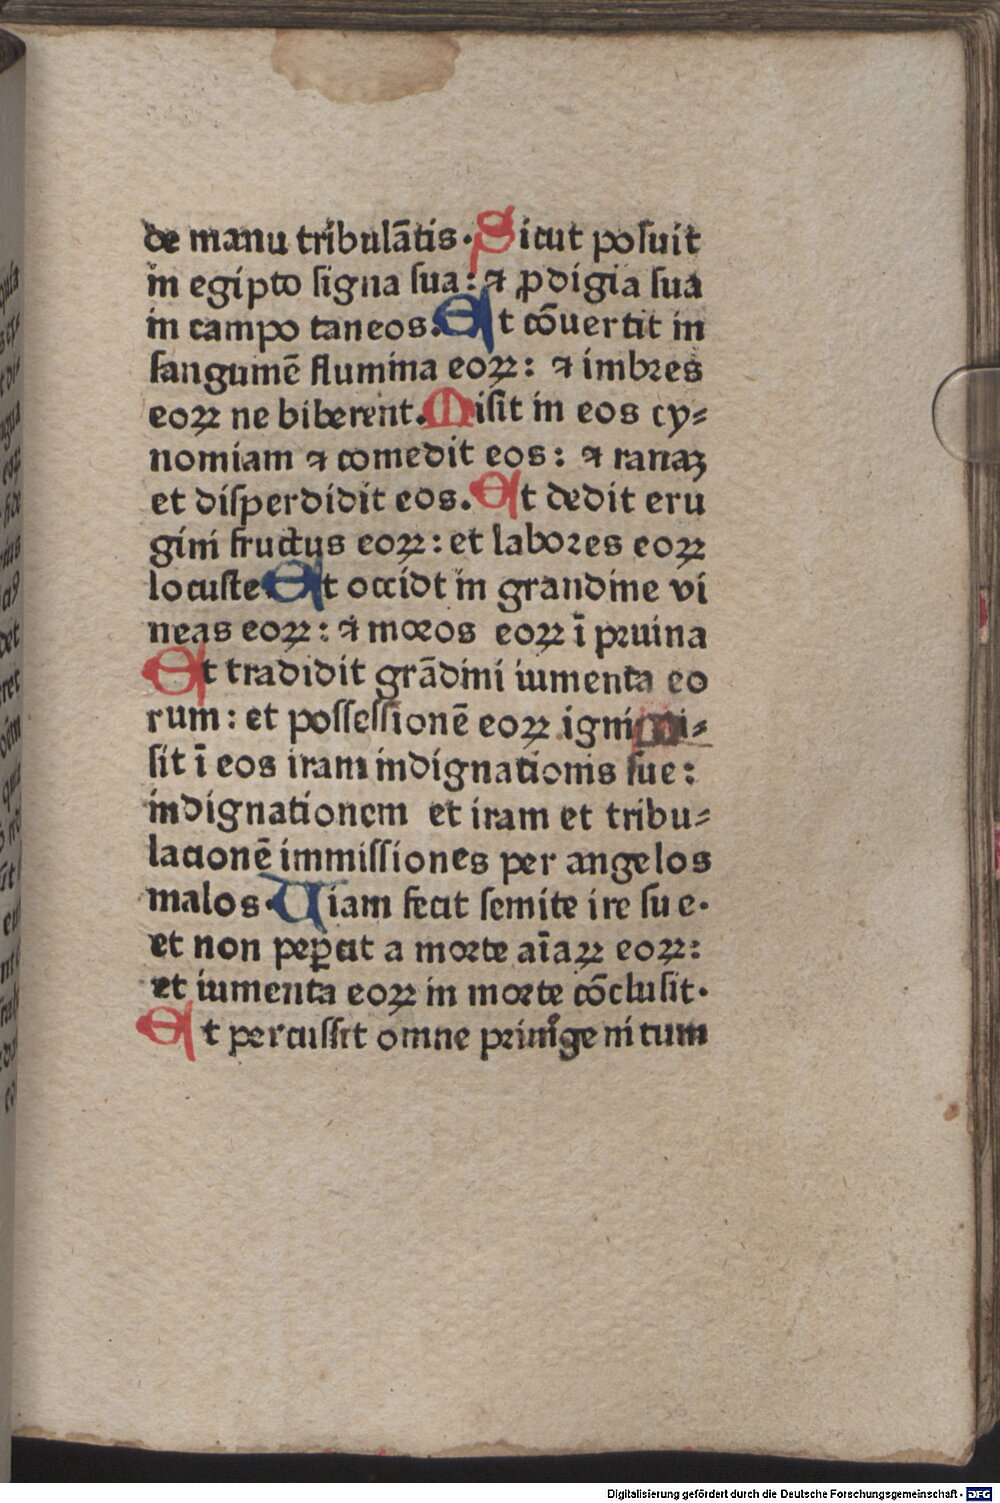 de manu tribulātis. Sicut posuit
in egipto signa sua: ⁊ ꝓdigia sua
in campo taneos. Et cōuertit in
sanguinē flumina eoꝝ: ⁊ imbꝛes
eoꝝ ne biberent. Misit in eos cy⸗
nomiam ⁊ comedit eos: ⁊ ranaꝫ
et disperdidit eos. Et dedit eru
gini fructus eoꝝ: et laboꝛes eoꝝ
locuste Et occidt in grandine vi
neas eoꝝ: ⁊ moꝛos eoꝝ ī pꝛuina
Et tradidit grādini iumenta eo
rum: et possessionē eoꝝ igni Mi⸗
sit ī eos iram indignationis sue:
indignationem et iram et tribu⸗
lacionē immissiones per angelos
malos. Uiam fecit semite ire sue.
et non peꝑcit a moꝛte aīaꝝ eoꝝ:
et iumenta eoꝝ in moꝛte cōclusit.
Et percussit omne pꝛimōgenitum
Digitalisierung gefördert durch die Deutsche Forschungsgemeinschaft - DFG